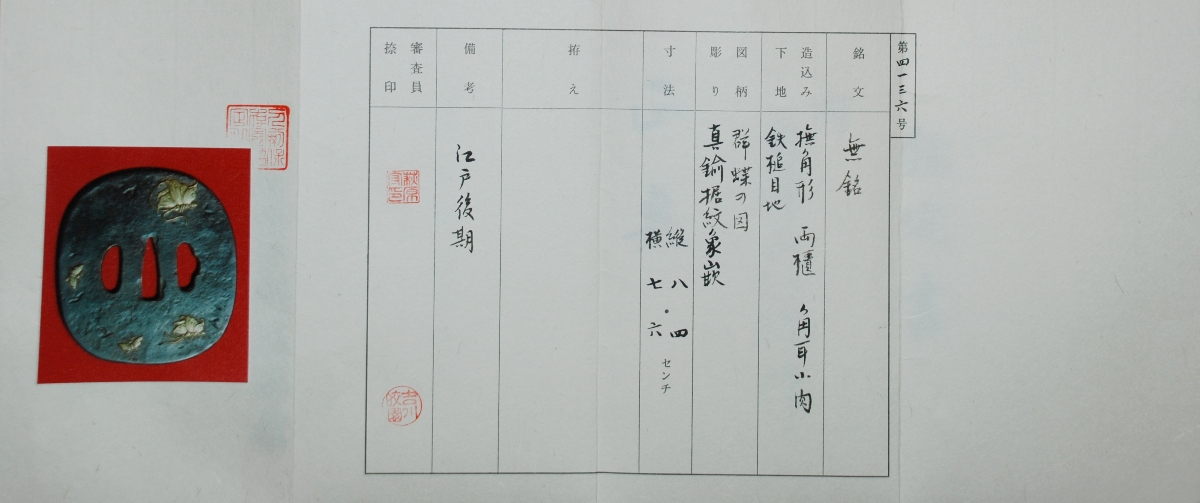 第四一三六号
銘文
無銘
造込み
下地
撫角形 両櫃 角耳小肉
鉄槌目地
図柄
彫り
群蝶の図
真鍮据紋象嵌
寸法
縦 八・四
横 七・六
センチ
拵え
備考
江戸後期
審査員
捺印